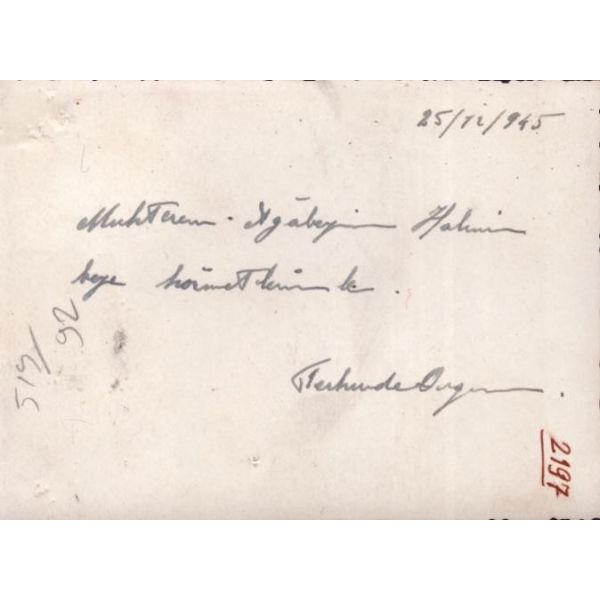 25/12/945
Muhterem Ağabeyim Halim
beye hörmetlerimle.
Ferhunde
519/
92
2197